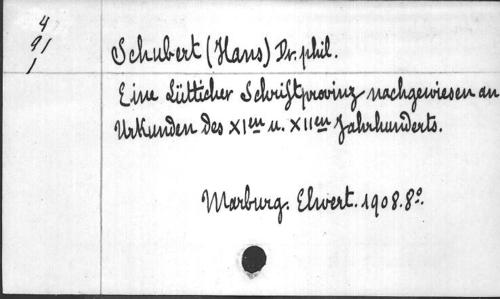 4
91
1
Schubert (Hans) Dr. phil.
Eine Lütticher Schriftprovinz nachgewiesen an
Urkunden des XIen u. XIIen Jahrhunderts.
Marburg. Elwert. 1908. 8º.